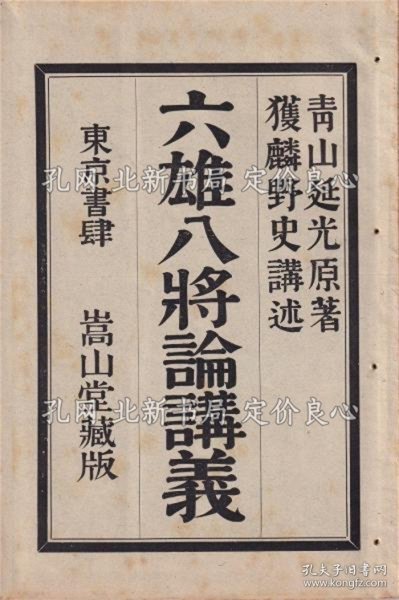 青山延光原著
獲麟野史講述
六雄八將論講義
東京書肆 嵩山堂藏版
孔网 北新书局 定价良心
孔网 北新书局 定价良心
孔网 北新书局 定价良心
孔夫子旧书网